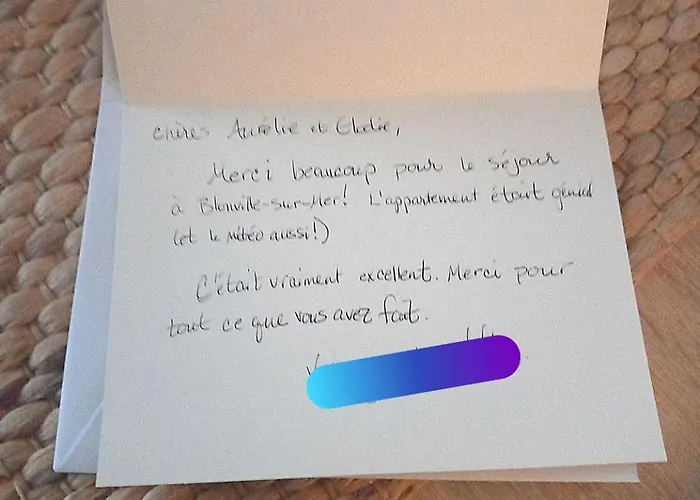 chères Aurélie et Elodie,
Merci beaucoup pour le séjour
à Blonville-sur-Mer! L'appartement était génial
(et le météo aussi!)
C'était vraiment excellent. Merci pour
tout ce que vous avez fait.